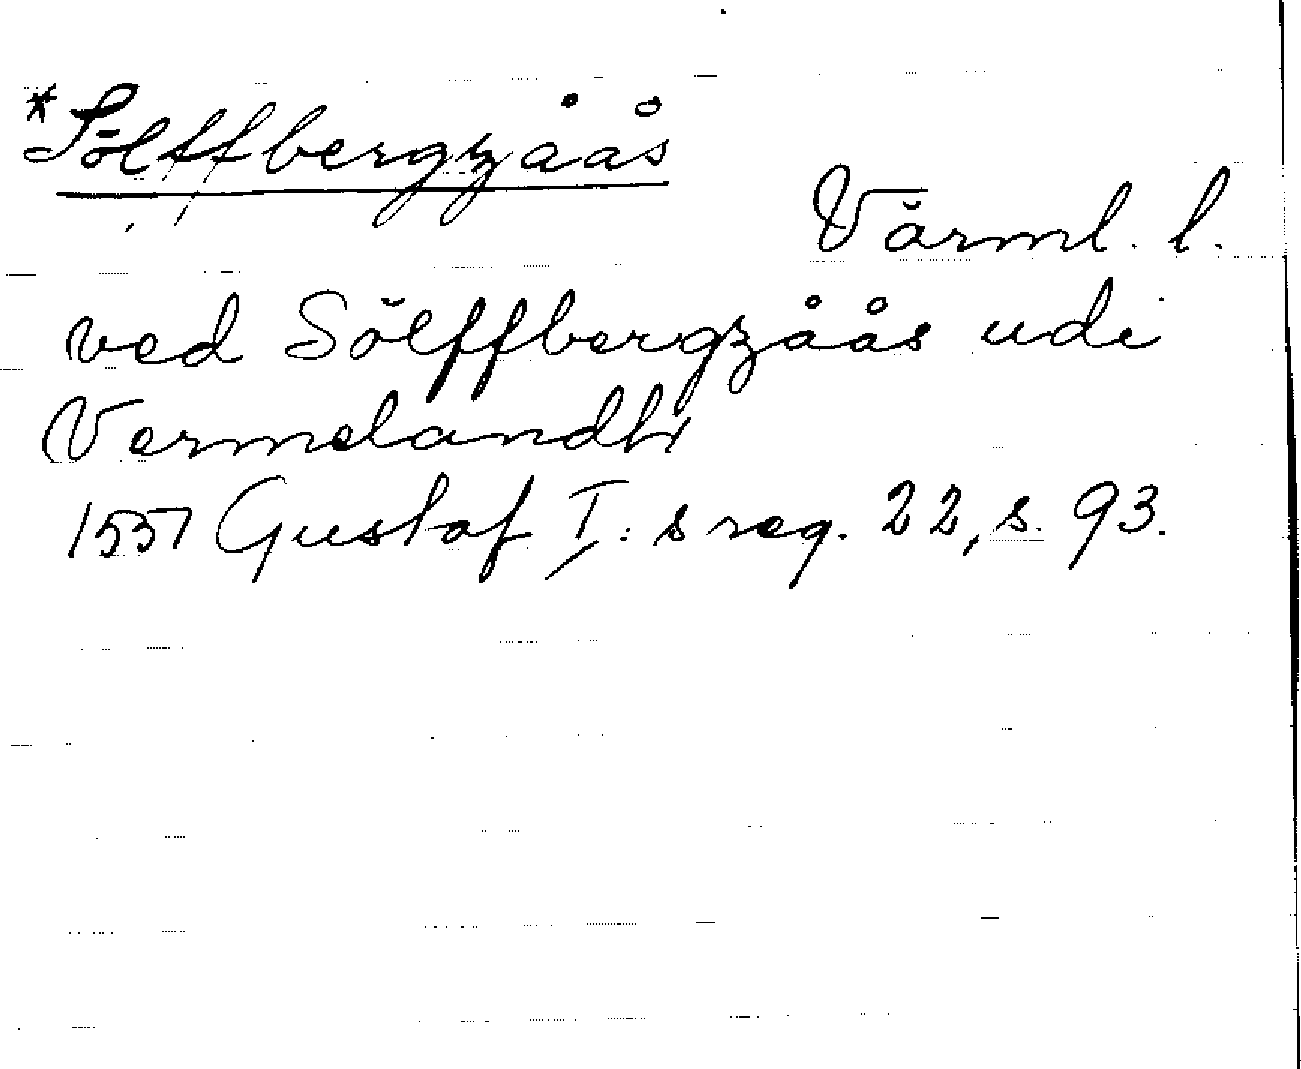 *Sölffbergzåås
Värml. l.
ved Sölffbergzåås udi
Vermelandh
1551 Gustaf I:s reg. 22, s. 93.